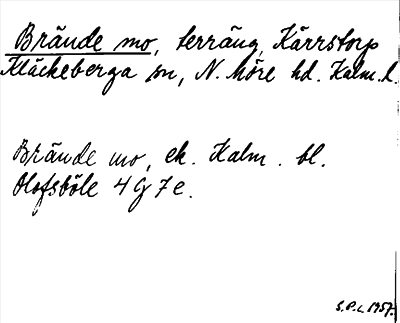 Brände mo, terräng, Kärrstorp
Kläckeberga sn, N. Möre hd. Kalm. l.
Brände mo, ek. Kalm. bl.
Olofsböle 4 G 7 e.
S.P.L 1957.